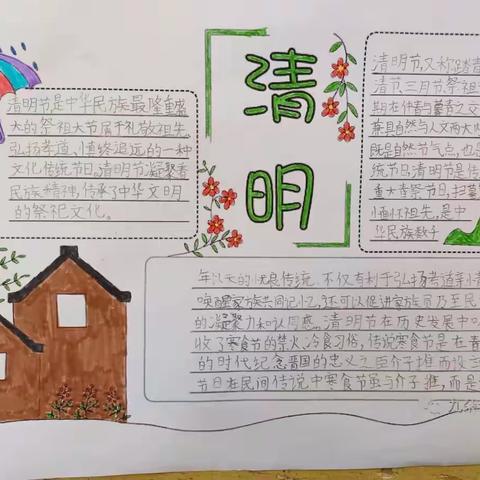 清明
清明节是中华民族最隆重盛
大的祭祖大节属于礼敬祖先,
弘扬孝道,慎终追远的一种
文化传统节日。清明节凝聚着
民族精神,传承了中华文明
的祭祀文化。
清明节又称踏青
清节三月节祭祖
期在仲春与暮春之交
兼具自然与人文两大
既是自然节气点,也是
统节马清明节是传
重大春祭节日,扫墓
缅怀祖先,是中
华民族数千
年以来的优良传统,不仅有利于弘扬孝道亲情
唤醒家族共同记忆,还可以促进家族成员乃至民
的凝聚力和认同感。清明节在历史发展中
收了寒食节的禁火,冷食习俗,传说寒食节是在春
的时代纪念晋国的忠义之臣介子推而设立
节日在民间传说中寒食节虽与介子推,而是